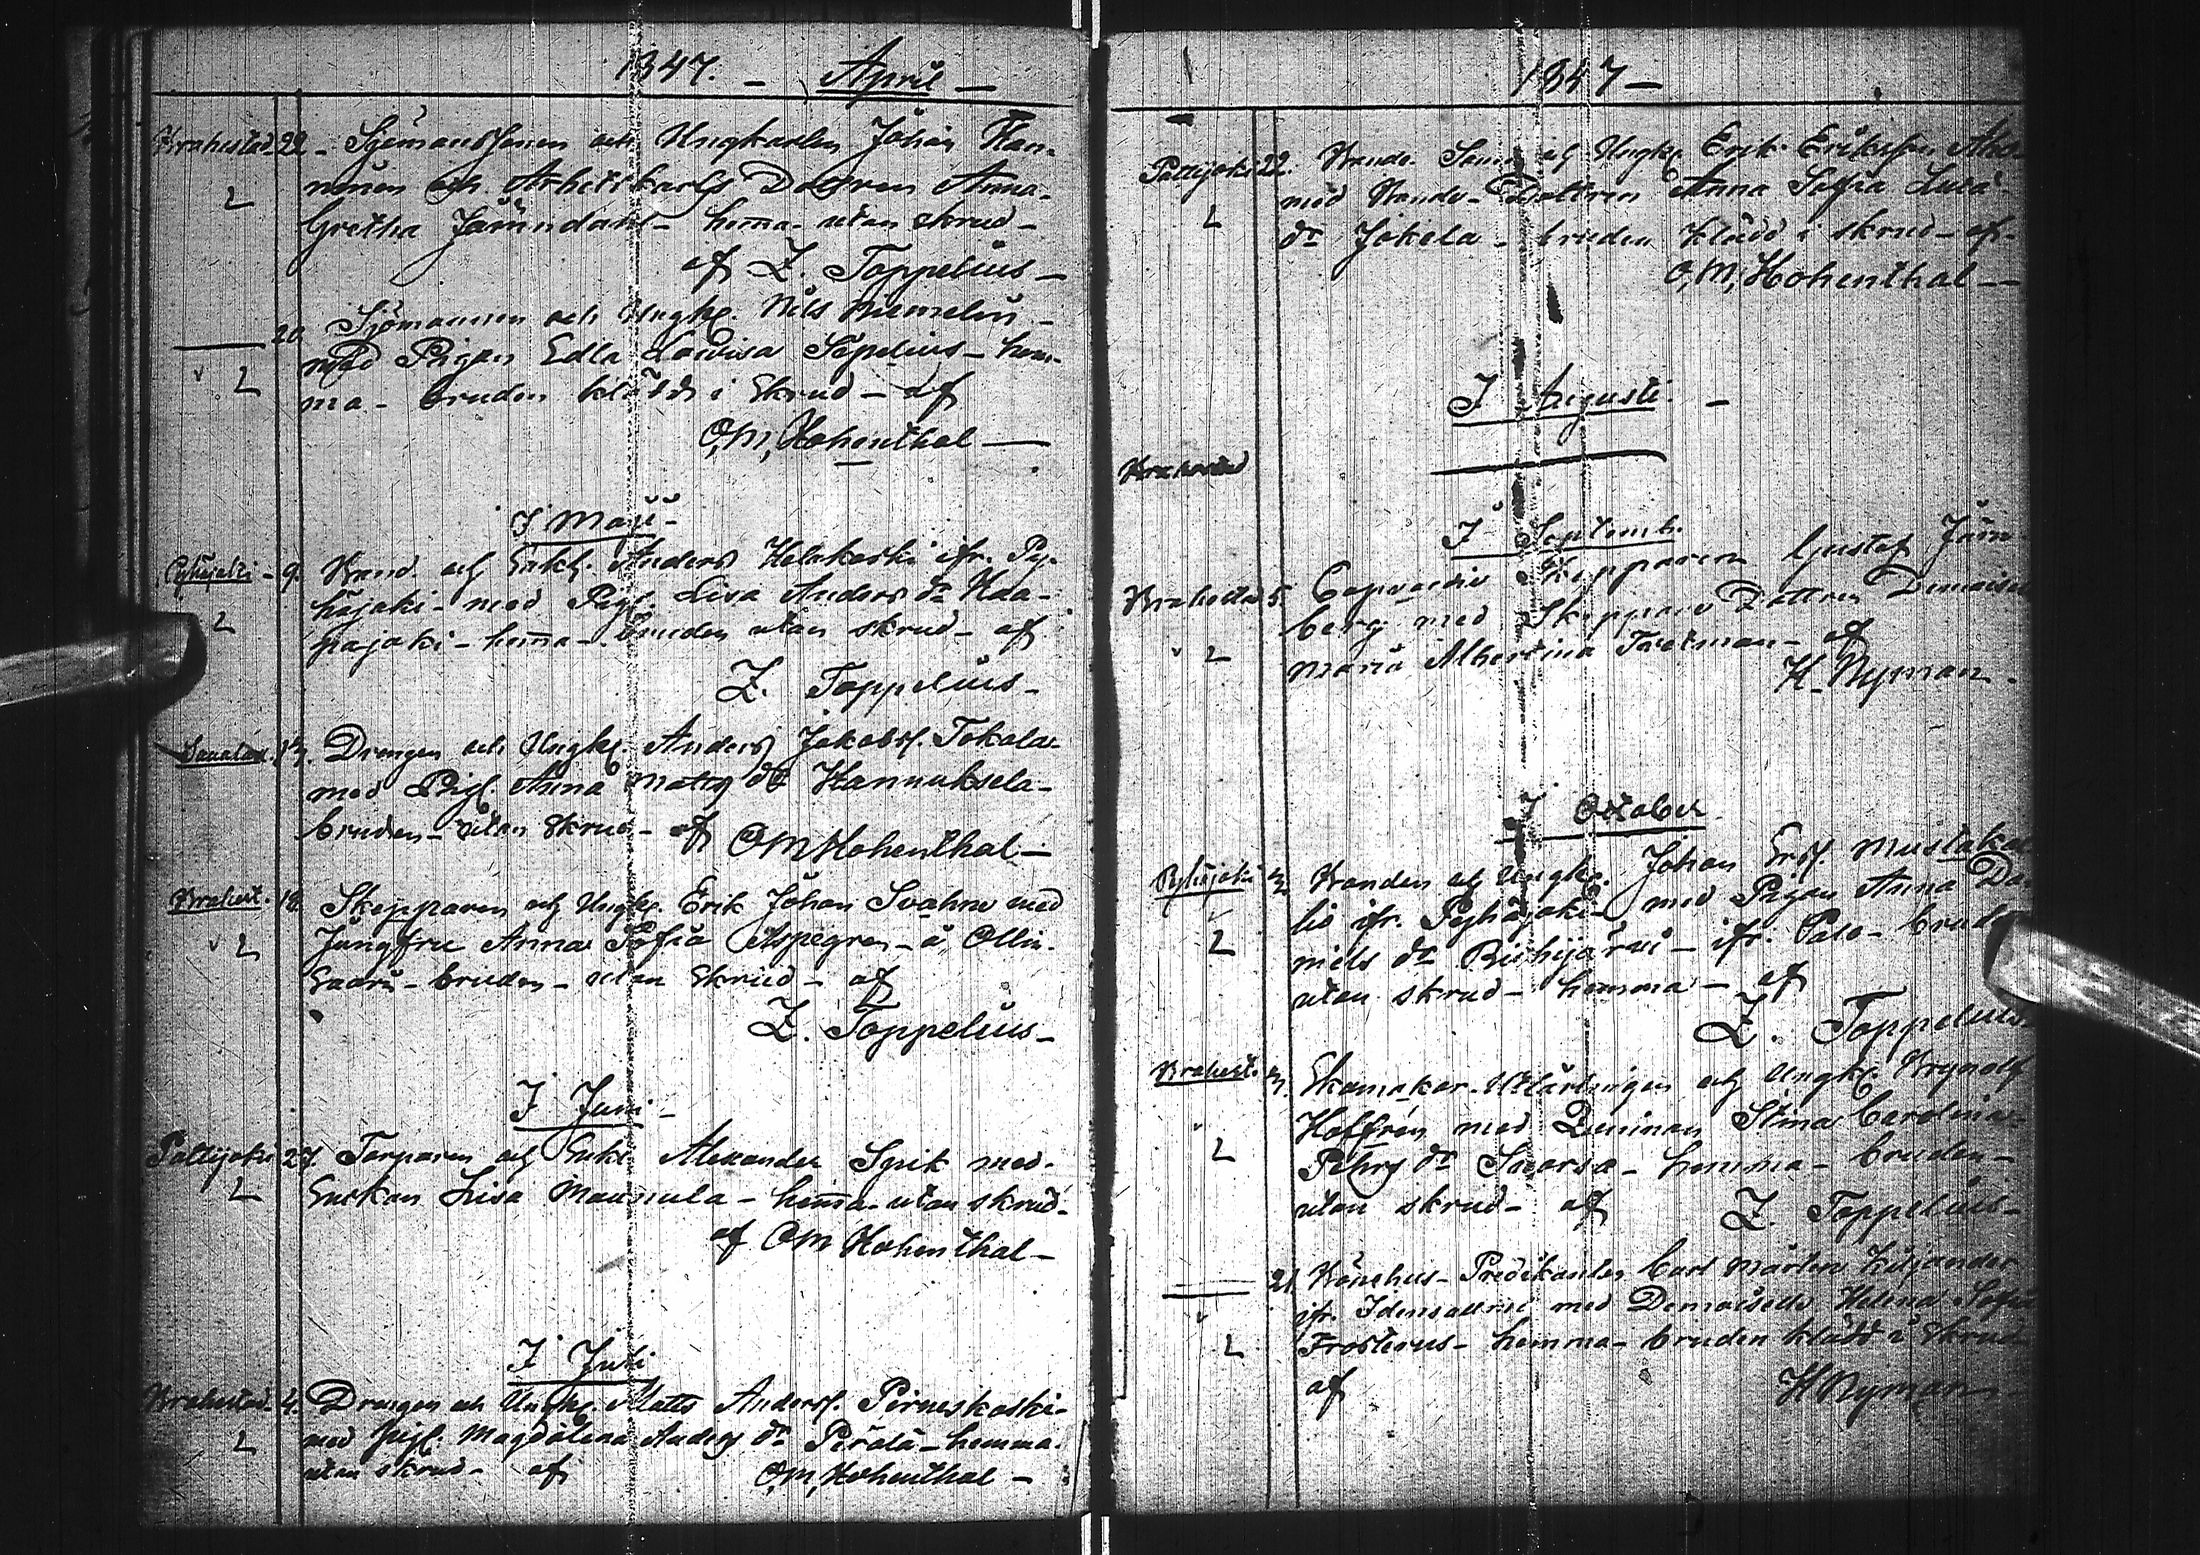 1847. – April –
Brahestad 22. Sjömanssonen och Ungkarlen Johan Han-
2 nuen och Arbetskarls Dottren Anna
Gretha Järndahl – hema utan skrud –
af Z. Toppelius –
20. Sjömannen och Ungk. Nils Niemelin –
med Pigan Edla Lowisa Sipelius – hem-
2 ma – bruden klädd i skrud – af
O,M, Hohenthal –
I Maji –
Pyhäjoki – 9. Bond. och Enkl. Anders Helakoski ifr. Py-
häjoki – med Pig. Lisa Anders dr Haa-
2 pajoki – hema – bruden utan skrud – af
Z. Toppelius –
Drengen och Ungk. Anders Jakobss. Tokola
med Pig. Anna Matts dr Hannuksela –
bruden – utan skrud – af OM Hohenthal –
Brahest. 18. Skepparen och Ungk. Erik Johan Svahn med
2 Jungfru Anna Sofia Aspegren – å Ollin-
Saari – bruden – utan skrud – af
Z. Toppelius –
I Juni –
Pattijoki 27. Torparen och Enkl Alexander Spik med
2 Enkan Lisa Maunula – hema – utan skrud –
af OM Hohenthal –
I Juli
Brahestad. 4. Drengen och Ungk. Matts Anderss. Pirneskoski –
2 med Pig. Magdalena Anders dr Perälä – hemma
utan skrud – af O,M, Hohenthal –
1847 –
Pattijoki 22. Bonde Sonen och Ungk Erik Eriksson
2 med Bonde – Dottren Anna Sofia
dr Jokela – bruden klädd i skrud – af
O,M, Hohenthal –
I Augusti. –
Brahestad
I Septemb.
Brahestad 5. Skepparen Gustaf Jän-
berg med Skeppare Dottren Demoisell
2 Maria Albertina – af
H Nyman.
I October
Pyhäjoki 3. Bonden och Ungk. Johan Erss. Mustaka
lio ifr. Pyhäjoki – med Pigan Anna Da-
2 niels dr Ruhijärvi – ifr. Palo – brud
utan skrud – hemma – af
Z. Toppelius
Brahest. Skomakar – Utlärlingen och Ungk. Brynolf
Hoffrén med Qvinnan Stina Carolina
2 Pehrs dr – hemma – bruden –
utan skrud – af Z. Toppelius –
21. Predikanten Carl Mårten Kiljander
ifr. Idensalmi med Demoiselle Helena Sofia
2 Frosterus – hemma – bruden klädd i skrud
af H Nyman